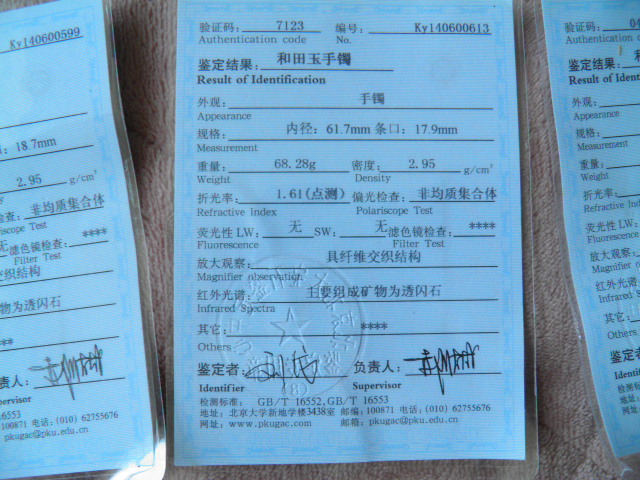 Ky140600599
18.7mm
2.95 g/cm³
非均质集合体
iscope Test
滤色镜检查:
Filter Test
交织结构
物为透闪石
***
责人:
pervisor
6553
100871 电话:(010) 62755676
pkugac@pku.edu.cn
验证码: 7123 编号: Ky140600613
Authentication code No.
鉴定结果: 和田玉手镯
Result of Identification
外观: 手镯
Appearance
规格: 内径:61.7mm 条口:17.9mm
Measurement
重量: 68.28g 密度: 2.95 g/cm³
Weight Density
折光率: 1.61(点测) 偏光检查: 非均质集合体
Refractive Index Polariscope Test
荧光性 LW: 无 SW: 无 滤色镜检查: ****
Fluorescence Filter Test
放大观察: 具纤维交织结构
Magnifier observation
红外光谱: 主要组成矿物为透闪石
Infrared Spectra
其它: ****
Others
鉴定者: 负责人:
Identifier Supervisor
检测标准: GB/T 16552,GB/T 16553
地址: 北京大学新地学楼3438室 邮编:100871 电话:(010) 62755676
网址: www.pkugac.com 邮箱: pkugac@pku.edu.cn
验证码: 04
Authentication
鉴定结果: 和
Result of Identi
外观:
Appearance
规格:
Measurement
重量:
Weight
折光率:
Refractive In
荧光性 LW:
Fluorescence
放大观察:
Magnifier
红外光谱:
Infrared S
其它:
Others
鉴定
Identi
检测
地址
网址